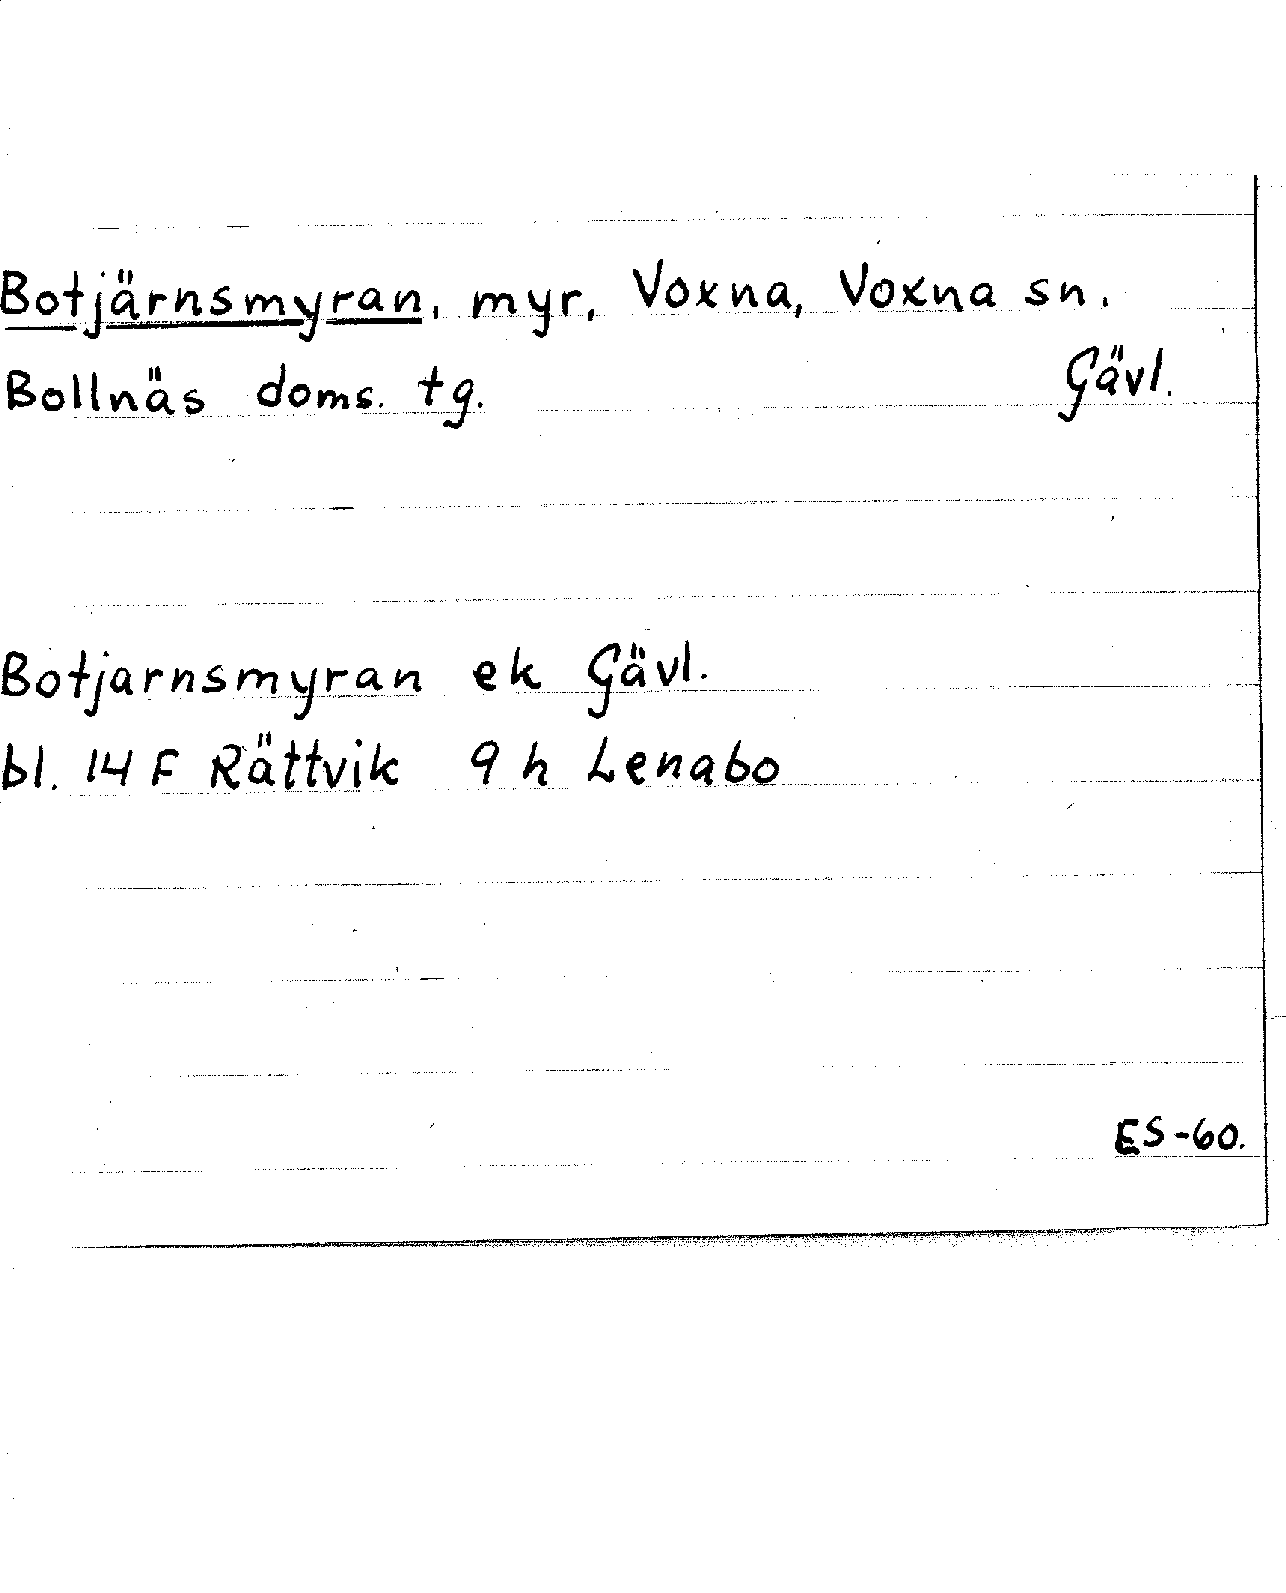 Botjärnsmyran, myr, Voxna, Voxna sn.
Bollnäs doms. tg. Gävl.
Botjarnsmyran ek Gävl.
bl. 14 F Rättvik 9 h Lenabo
ES-60.